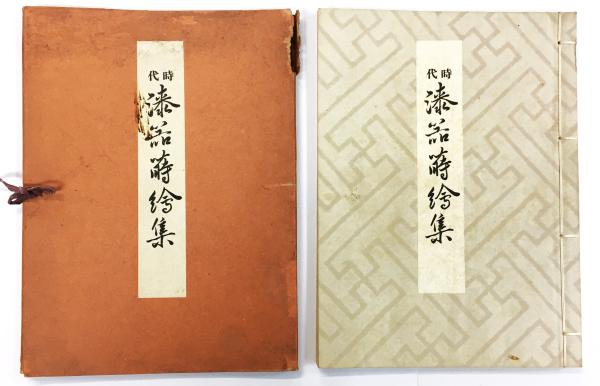 時代
漆器蒔繪集
時代
漆器蒔繪集